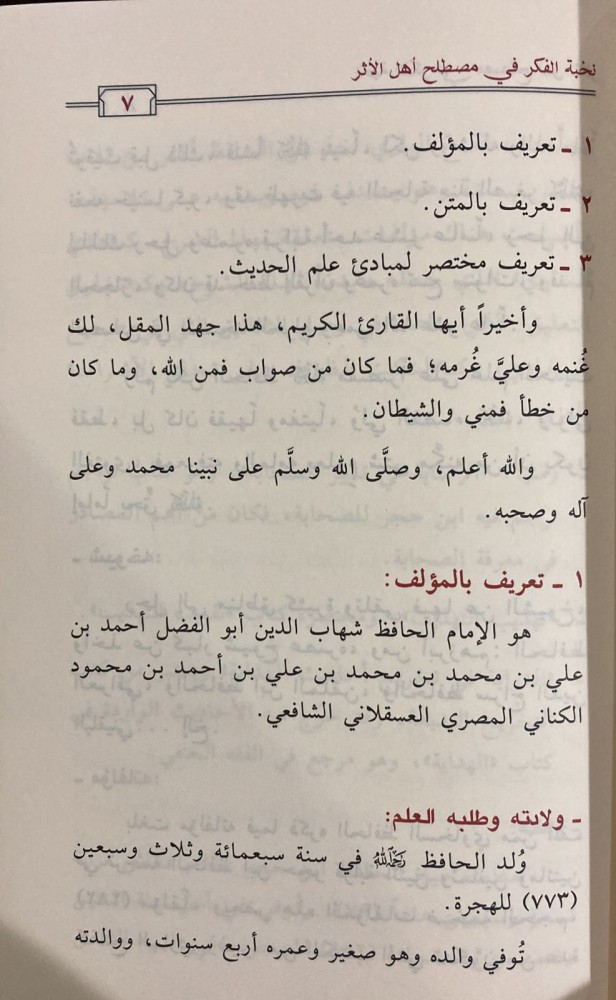 نخبة الفكر في مصطلح أهل الأثر
٧
١ ـ تعريف بالمؤلف.
٢ ـ تعريف بالمتن.
٣ ـ تعريف مختصر لمبادئ علم الحديث.
وأخيراً أيها القارئ الكريم، هذا جهد المقل، لك
غُنمه وعليَّ غُرمه؛ فما كان من صواب فمن الله، وما كان
من خطأ فمني والشيطان.
والله أعلم، وصلَّى الله وسلَّم على نبينا محمد وعلى
آله وصحبه.
١ ـ تعريف بالمؤلف:
هو الإمام الحافظ شهاب الدين أبو الفضل أحمد بن
علي بن محمد بن محمد بن علي بن أحمد بن محمود
الكناني المصري العسقلاني الشافعي.
ـ ولادته وطلبه العلم:
وُلد الحافظ رحمه الله في سنة سبعمائة وثلاث وسبعين
(٧٧٣) للهجرة.
تُوفي والده وهو صغير وعمره أربع سنوات، ووالدته